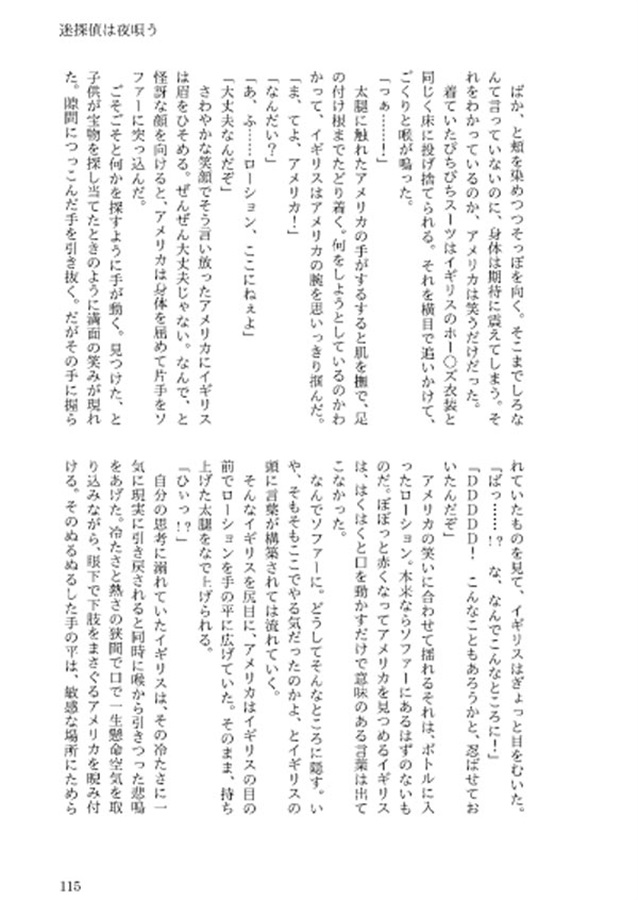 迷探偵は夜唄う
ばか、と頬を染めつつそっぽを向く。そこまでしろな
んて言っていないのに、身体は期待に震えてしまう。そ
れをわかっているのか、アメリカは笑うだけだった。
着ていたぴちぴちスーツはイギリスのホー〇ズ衣装と
同じく床に投げ捨てられる。それを横目で追いかけて、
ごくりと喉が鳴った。
「っぁ……！」
太腿に触れたアメリカの手がするすると肌を撫で、足
の付け根までたどり着く。何をしようとしているのかわ
かって、イギリスはアメリカの腕を思いっきり掴んだ。
「ま、てよ、アメリカ！」
「なんだい？」
「あ、ふ……ローション、ここにねぇよ」
「大丈夫なんだぞ」
さわやかな笑顔でそう言い放ったアメリカにイギリス
は眉をひそめる。ぜんぜん大丈夫じゃない。なんで、と
怪訝な顔を向けると、アメリカは身体を屈めて片手をソ
ファーに突っ込んだ。
ごそごそと何かを探すように手が動く。見つけた、と
子供が宝物を探し当てたときのように満面の笑みが現れ
た。隙間につっこんだ手を引き抜く。だがその手に握ら
れていたものを見て、イギリスはぎょっと目をむいた。
「ばっ……！？　な、なんでこんなところに！」
「ＤＤＤＤＤ！　こんなこともあろうかと、忍ばせてお
いたんだぞ」
アメリカの笑いに合わせて揺れるそれは、ボトルに入
ったローション。本来ならソファーにあるはずのないも
のだ。ぼぼっと赤くなってアメリカを見つめるイギリス
は、はくはくと口を動かすだけで意味のある言葉は出て
こなかった。
なんでソファーに。どうしてそんなところに隠す。い
や、そもそもここでやる気だったのかよ、とイギリスの
頭に言葉が構築されては流れていく。
そんなイギリスを尻目に、アメリカはイギリスの目の
前でローションを手の平に広げていた。そのまま、持ち
上げた太腿をなで上げられる。
「ひぃっ！？」
自分の思考に溺れていたイギリスは、その冷たさに一
気に現実に引き戻されると同時に喉から引きつった悲鳴
をあげた。冷たさと熱さの狭間で口で一生懸命空気を取
り込みながら、眼下で下肢をまさぐるアメリカを睨み付
ける。そのぬるぬるした手の平は、敏感な場所にためら
115